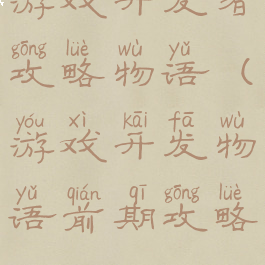 游戏开发者
gōng lüè wù yǔ
攻略物语（
yóu xì kāi fā wù
游戏开发物
yǔ qián qī gōng lüè
语前期攻略